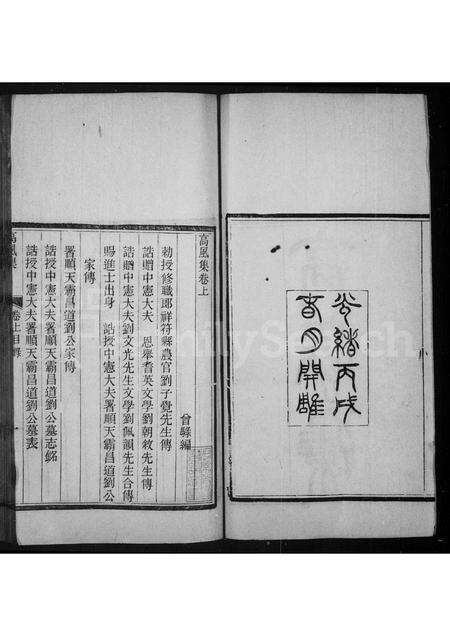 光緒丙戌
春月開雕
高風集卷上
曾縣編
勅授修職郎祥符縣農官劉子覺先生傳
誥贈中憲大夫　恩舉耆英文學劉朝敘先生傳
誥贈中憲大夫劉文光先生文學劉佩韻先生合傳
賜進士出身　誥授中憲大夫署順天霸昌道劉公
家傳
署順天霸昌道劉公家傳
誥授中憲大夫署順天霸昌道劉公墓志銘
誥授中憲大夫署順天霸昌道劉公墓表
高風集　卷上目錄　一
FamilySearch